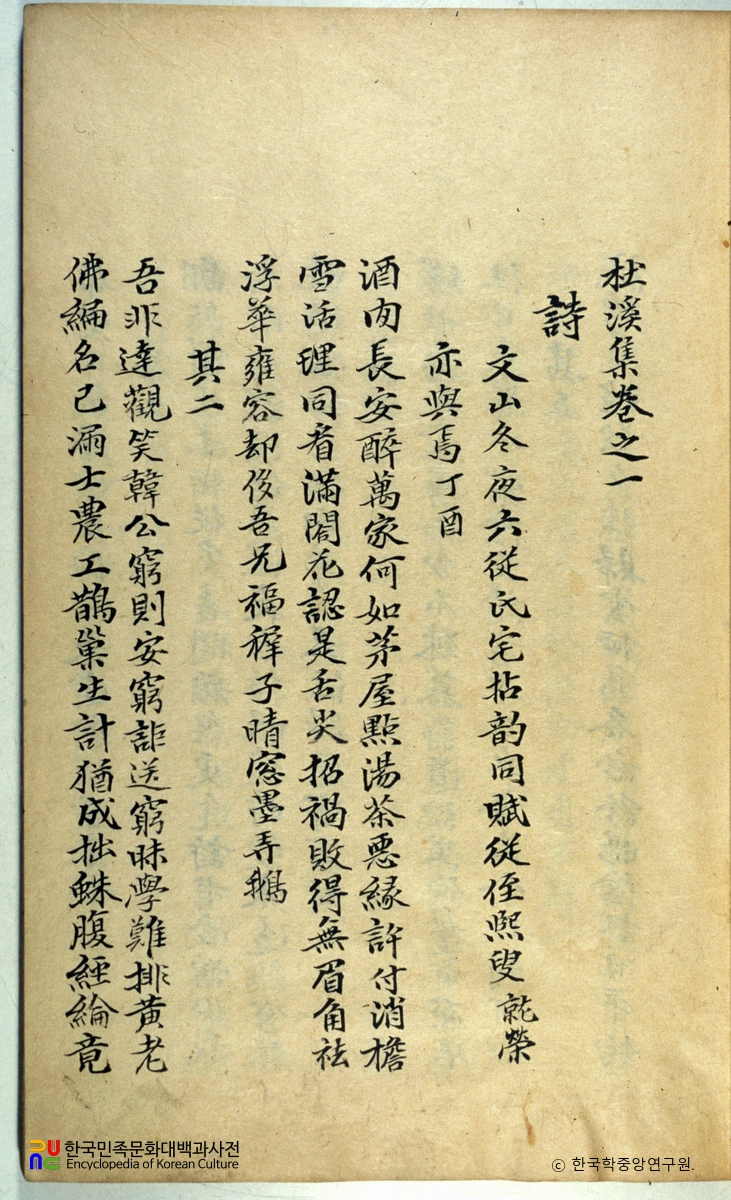 杜溪集卷之一
詩
文山冬夜六從氏宅拈韵同賦從侄熙叟㪍榮
亦與焉丁酉
酒肉長安醉萬家何如茅屋點湯茶惡緣許付消檐
雪活理同看滿閤花認是舌尖招禍敗得無眉角祛
浮華雍容却俊吾兄福稺子晴窓墨弄鵝
其二
吾非達觀笑韓公窮則安窮詎送窮昧學難排黃老
佛編名已漏士農工鵲巢生計猶成拙蛛腹經綸竟
한국민족문화대백과사전
Encyclopedia of Korean Culture
© 한국학중앙연구원.